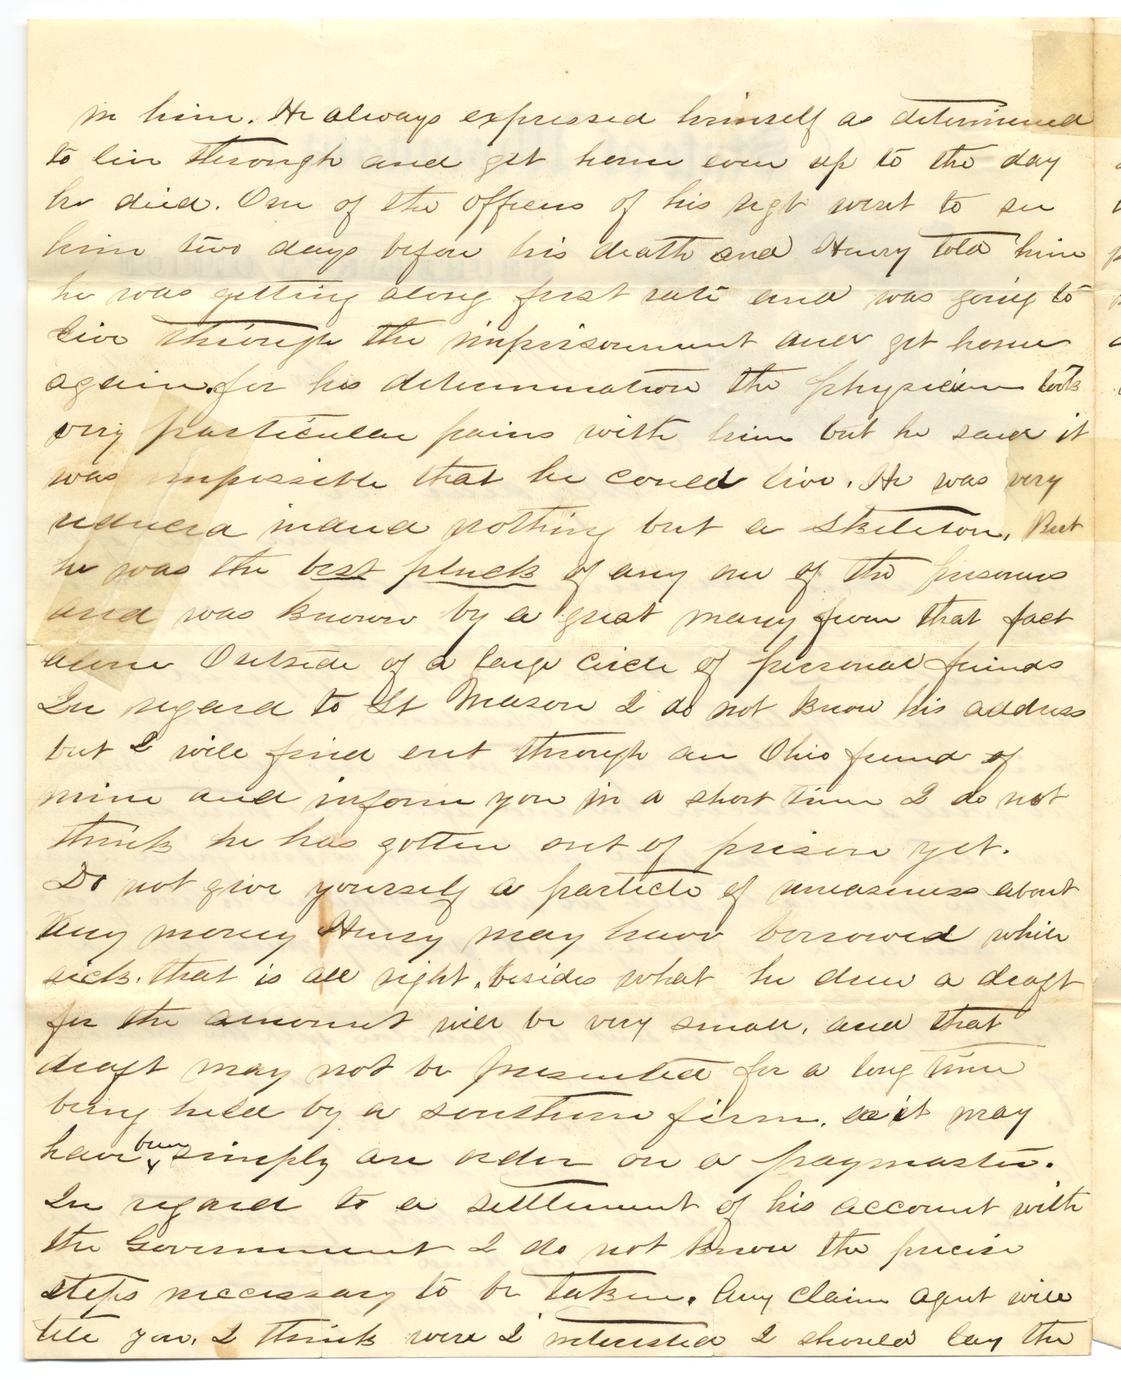 in him. He always expressed himself as determined
to live through and get home even up to the day
he died. One of the officers of his regt went to see
him two days before his death and Henry told him
he was getting along first rate and was going to
live through the imprisonment and get home
again. for his determination the physician took
very particular pains with him but he said it
was impossible that he could live. He was very
reduced indeed nothing but a skeleton, But
he was the best pluck of any one of the prisoners
and was known by a great many from that fact
alone Outside of a large circle of personal friends
In regard to Lt Mason I do not know his address
but I will find out through an Ohio friend of
mine and inform you in a short time I do not
think he has gotten out of prison yet.
Do not give yourself a particle of uneasiness about
any money Henry may have borrowed while
sick. that is all right. besides what he drew a draft
for the amount will be very small, and that
draft may not be presented for a long time
being held by a southern firm. as it may
have been simply an order on a paymaster.
In regard to a settlement of his account with
the Government I do not know the precise
steps necessary to be taken. Any claim agent will
tell you. I think were I interested I should lay the